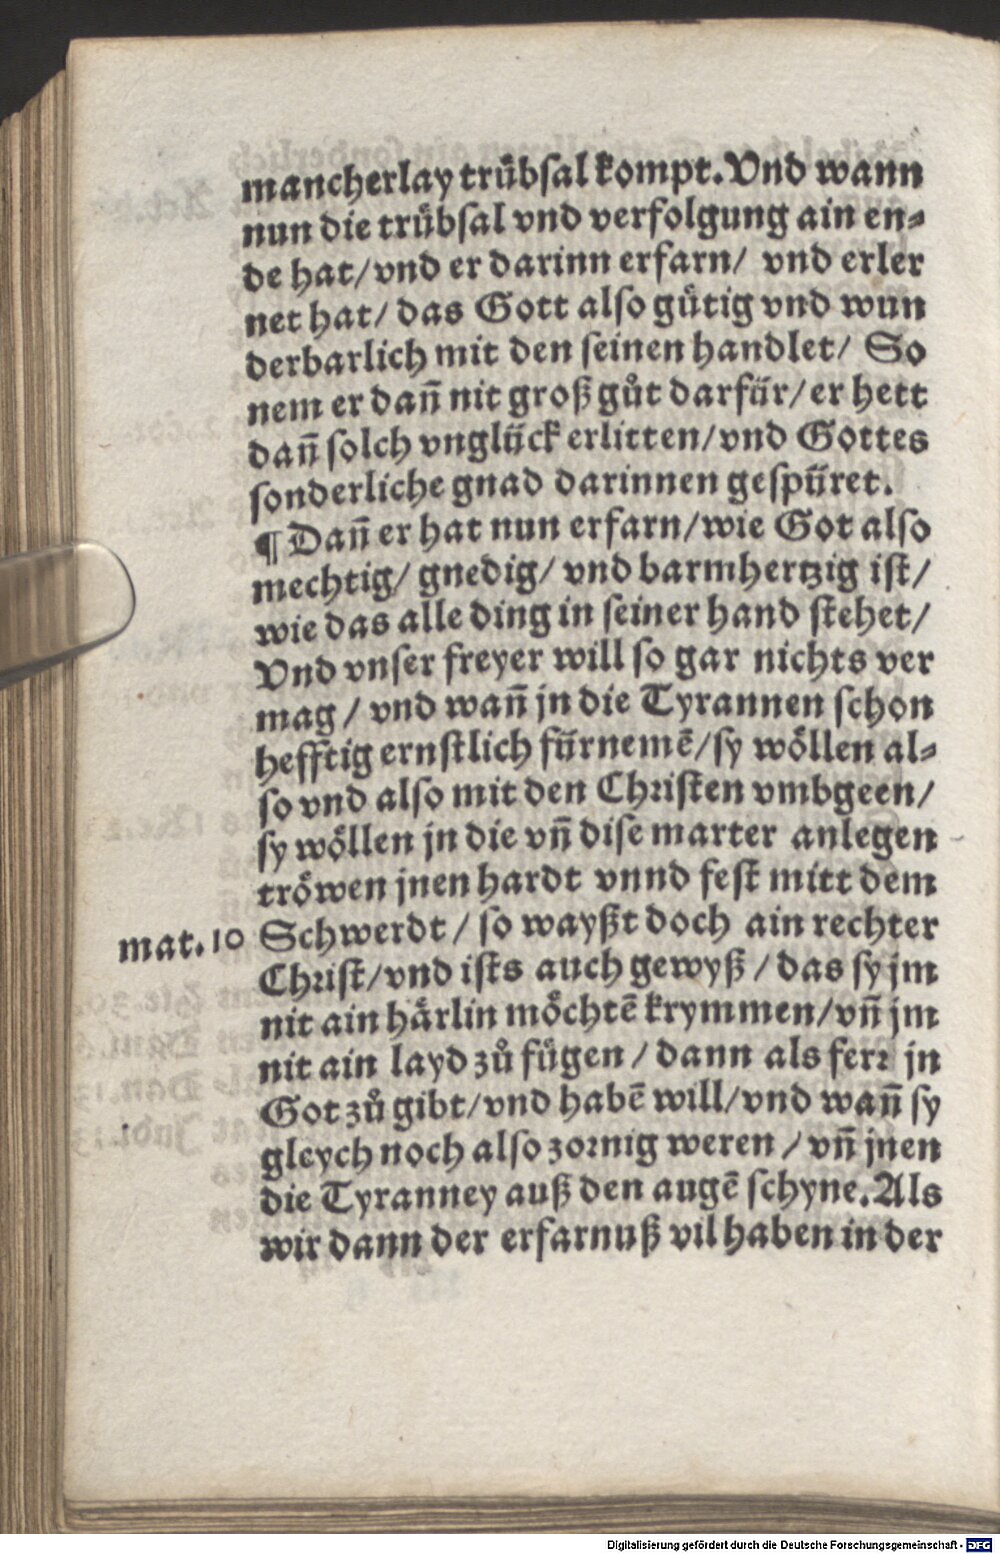 mancherlay truͤbſal kompt. Vnd wann
nun die truͤbſal vnd verfolgung ain en⸗
de hat/ vnd er darinn erfarn/ vnd erler
net hat/ das Gott alſo guͤtig vnd wun
derbarlich mit den ſeinen handlet/ So
nem er dañ nit groß guͦt darfuͤr/ er hett
dañ ſolch vngluͤck erlitten/ vnd Gottes
ſonderliche gnad darinnen geſpuͤret.
¶ Dañ er hat nun erfarn/ wie Got alſo
mechtig/ gnedig/ vnd barmhertzig iſt/
wie das alle ding in ſeiner hand ſtehet/
Vnd vnſer freyer will ſo gar nichts ver
mag / vnd wañ jn die Tyrannen ſchon
hefftig ernſtlich fuͤrnemē/ ſy woͤllen al⸗
ſo vnd alſo mit den Chꝛiſten vmbgeen/
ſy woͤllen jn die vñ diſe marter anlegen
troͤwen jnen hardt vnnd feſt mitt dem
mat. 10 Schwerdt / ſo wayßt doch ain rechter
Chꝛiſt/ vnd iſts auch gewyß / das ſy jm
nit ain haͤrlin moͤchtē krymmen/ vñ jm
nit ain layd zuͦ fuͤgen / dann als ferꝛ jn
Got zuͦ gibt/ vnd habē will/ vnd wañ ſy
gleych noch alſo zoꝛnig weren / vñ jnen
die Tyranney auß den augē ſchyne. Als
wir dann der erfarnuß vil haben in der
Digitalisierung gefördert durch die Deutsche Forschungsgemeinschaft - DFG